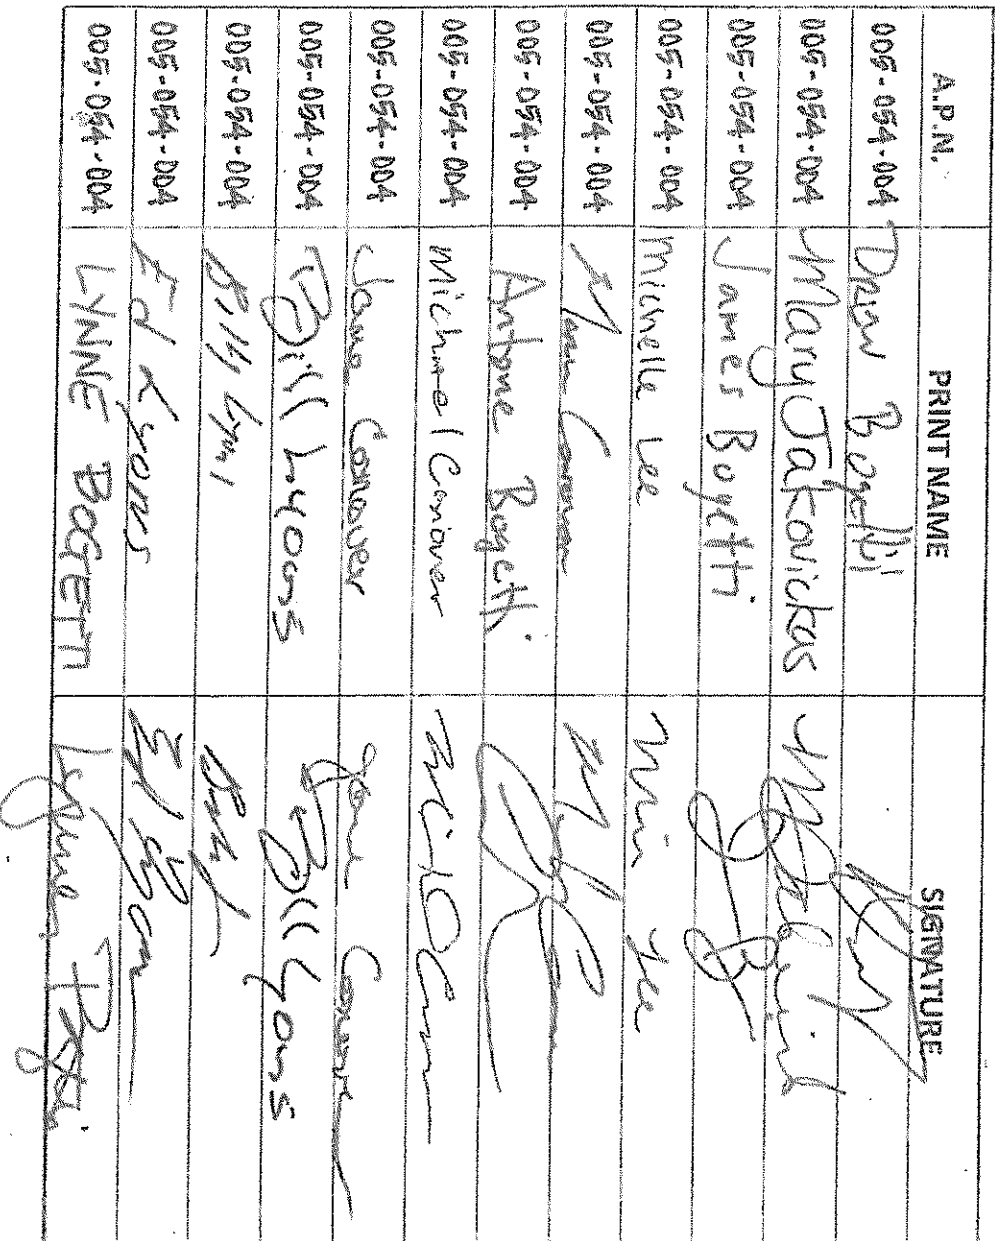 A.P.N. PRINT NAME SIGNATURE
005-054-004 Drew Bogetti
005-054-004 Mary Jatkovickas
005-054-004 James Bogetti
005-054-004 Michelle Lee
005-054-004
005-054-004 Antone Bogetti
005-054-004 Michael Conover
005-054-004 Jane Conover Jane Conover
005-054-004 Bill Lyons Bill Lyons
005-054-004 Billy Lyons
005-054-004 Ed Lyons Ed Lyons
005-054-004 LYNNE BOGETTI Lynne Bogetti